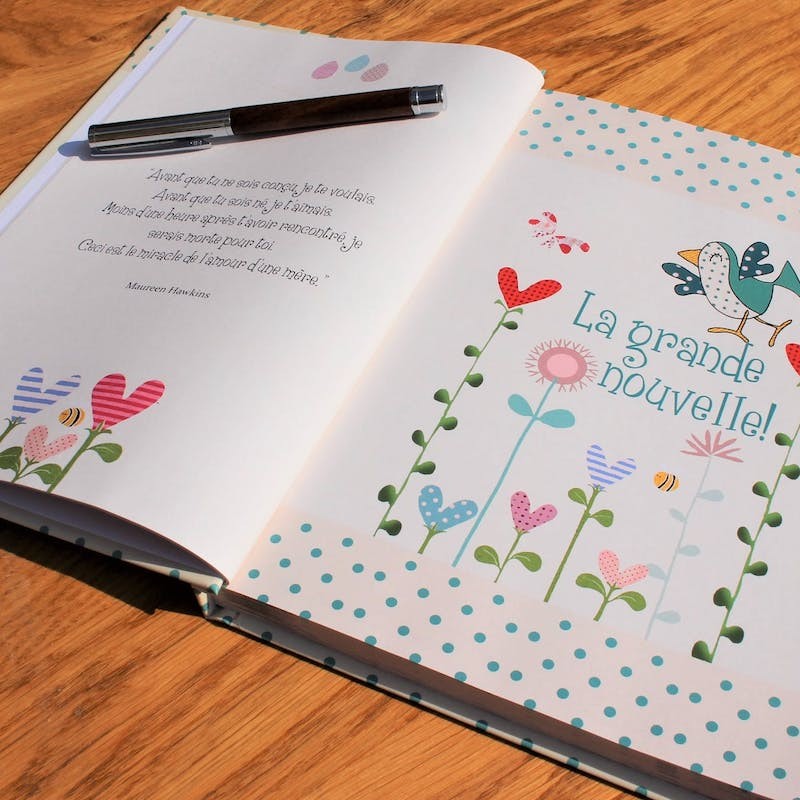 "Avant que tu ne sois conçu, je te voulais.
Avant que tu sois né, je t'aimais.
Moins d'une heure après t'avoir rencontré, je
serais morte pour toi.
Ceci est le miracle de l'amour d'une mère."
Maureen Hawkins
La grande
nouvelle!